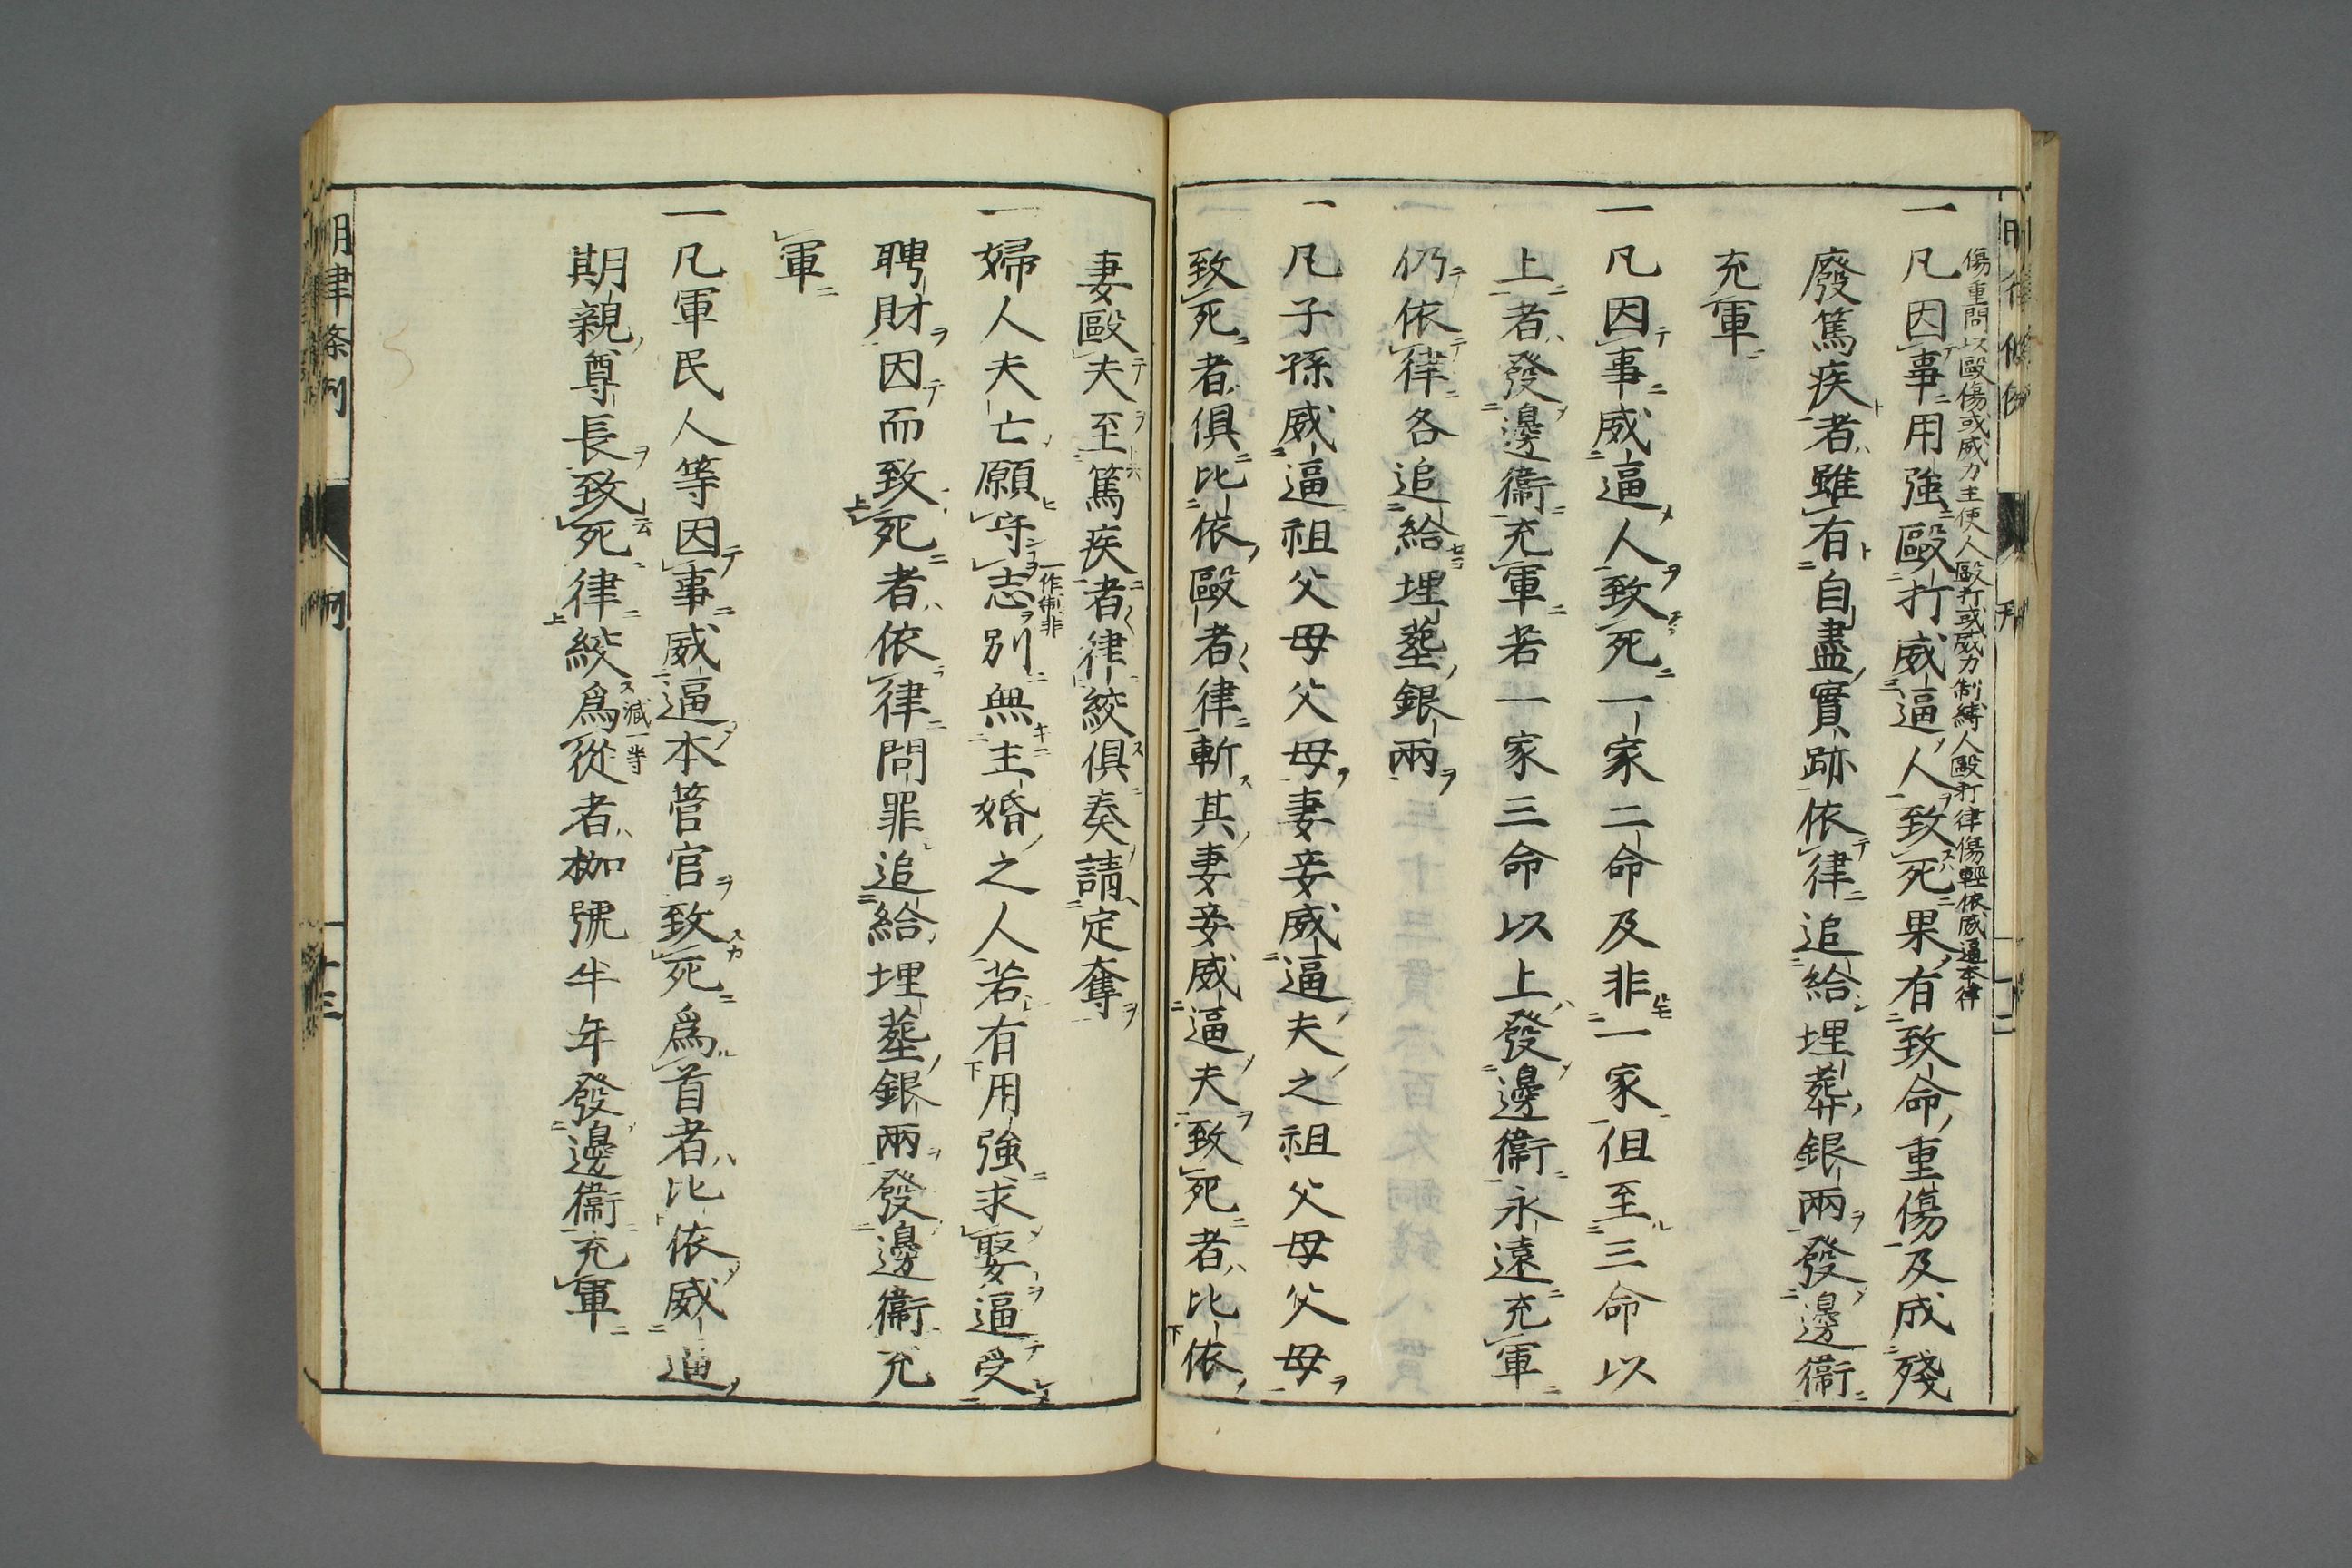 傷重問以毆傷或威力主使人毆打或威力制縛人毆打律傷輕依威逼本律
一凡因事用強毆打威逼人致死果有致命重傷及成殘
廢篤疾者雖有自盡實跡依律追給埋葬銀兩發邊衞
充軍
一凡因事威逼人致死一家二命及非一家但至三命以
上者發邊衞充軍若一家三命以上發邊衞永遠充軍
仍依律各追給埋葬銀兩
一凡子孫威逼祖父母父母妻妾威逼夫之祖父母父母
致死者俱比依毆者律斬其妻妾威逼夫致死者比依
妻毆夫至篤疾者律絞俱奏請定奪
一婦人夫亡願守志別無主婚之人若有用強求娶逼受
一作制非
聘財因而致死者依律問罪追給埋葬銀兩發邊衞充
軍
一凡軍民人等因事威逼本管官致死爲首者比依威逼
期親尊長致死律絞爲從者枷號半年發邊衞充軍
減一等
明律條例
十三